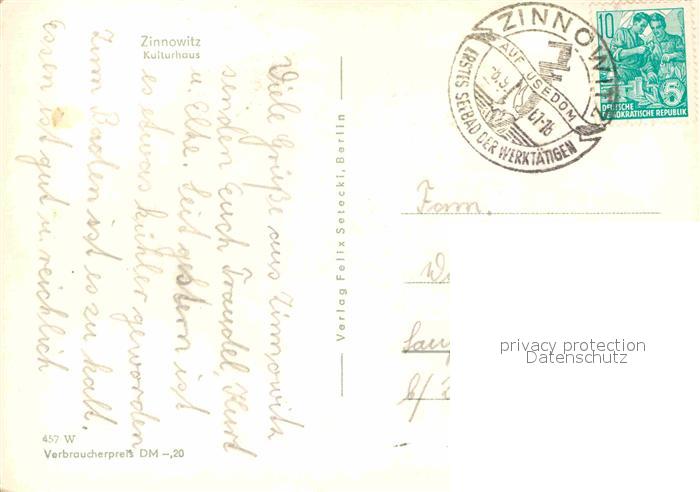 Zinnowitz
Kulturhaus
Viele Grüße aus Zinnowitz
senden Euch Traudel, Kurt
u. Elke. Seit gestern ist
es etwas kühler geworden,
zum Baden ist es zu kalt.
Essen ist gut u. reichlich
457 W
Verbraucherpreis DM –,20
Verlag Felix Setecki, Berlin
ZINNOWITZ
AUF USEDOM
ERSTES SEEBAD DER WERKTÄTIGEN
10
5
DEUTSCHE
DEMOKRATISCHE REPUBLIK
Fam.
privacy protection
Datenschutz